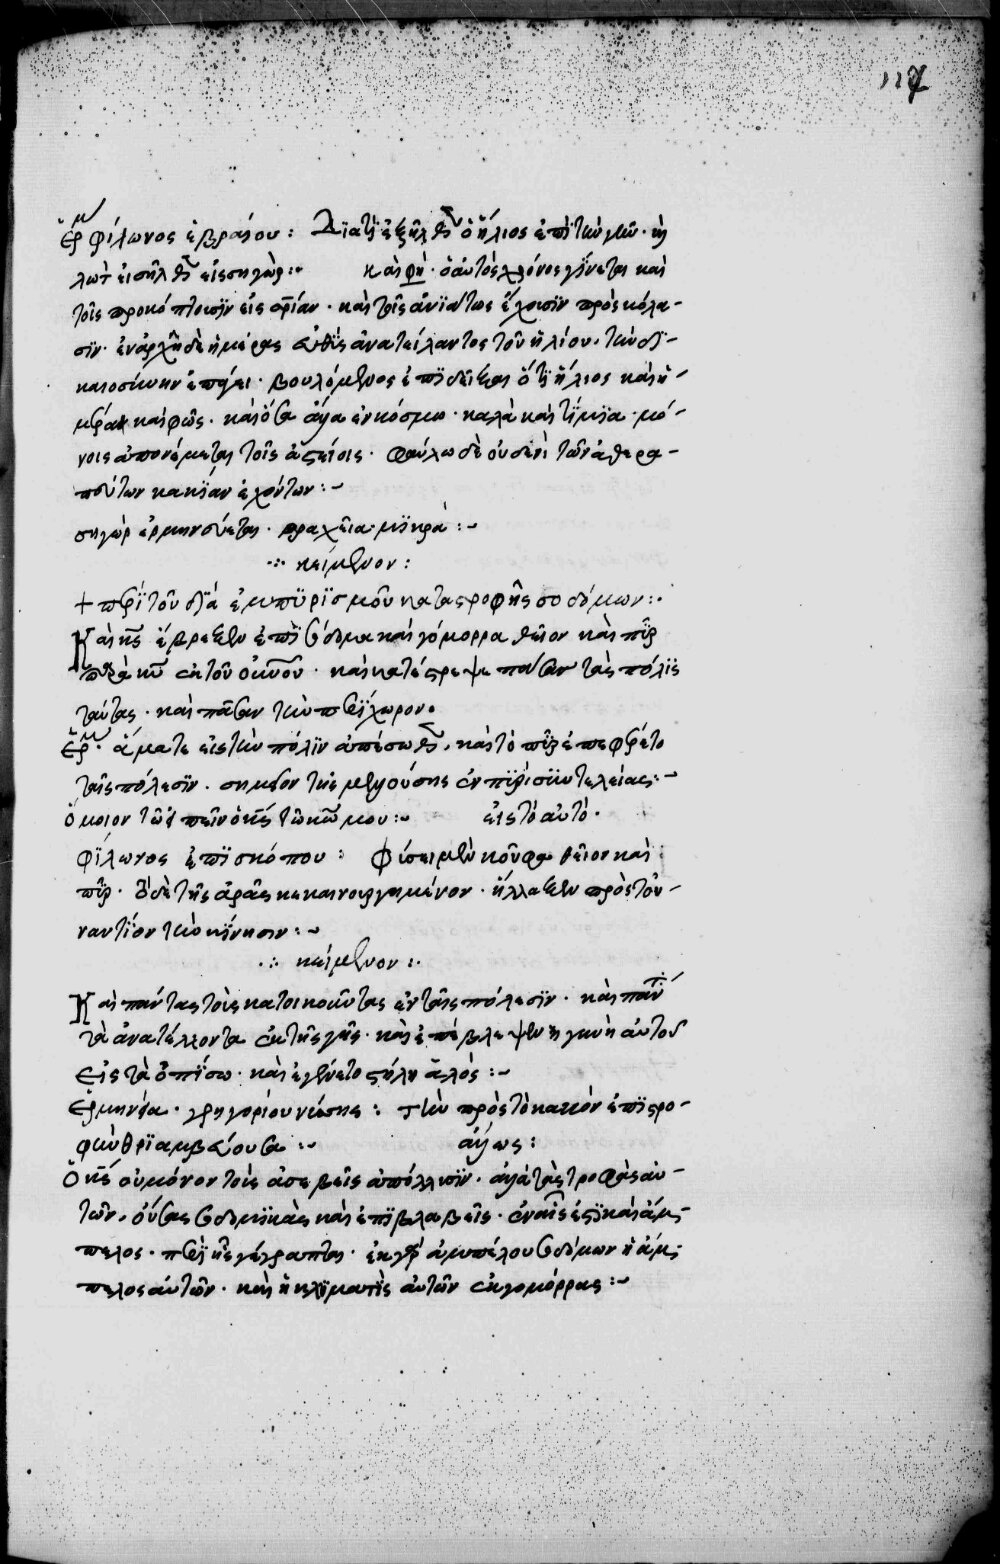 117
ἑρμ φίλωνος ἑβραίου : Διατί ἐξῆλθεν ὁ ἥλιος ἐπὶ τὴν γῆν · κὶ
λὼτ εἰσῆλθεν εἰς σηγώρ :~ καὶ φη · ὁ αὐτὸς χρόνος γίνεται καὶ
τοῖς προκόπτουσιν εἰς σρίαν · καὶ τοῖς ἀνιάτως ἔχουσιν πρὸς κόλα-
σιν · ἐν ἀρχῇ δὲ ἡμέρας εὐθὺς ἀνατείλαντος τοῦ ἡλίου · τὴν δι-
καιοσύνην ἐπάγει · βουλόμενος ἐπιδεῖξαι ὅτι ἥλιος καὶ ἡ-
μέρα καὶ φῶς · καὶ ὅσα ἄλλα ἐν κόσμῳ · καλὰ καὶ τίμια · μό-
νοις ἀπονέμεται τοῖς ἀστείοις · φαύλῳ δὲ οὐδενὶ τῶν ἀθερα-
πεύτων κακίαν ἐχόντων :~
σηγὼρ ἑρμηνεύεται · βραχεῖα · μικρά :~
·:· κείμενον :
+ περὶ τοῦ διὰ ἐμπυρισμοῦ καταστροφῆς σοδόμων :·
Καὶ κς ἔβρεξεν ἐπὶ σόδομα καὶ γόμορρα θεῖον καὶ πῦρ
παρὰ κυ ἐκ τοῦ οὐνου · καὶ κατέστρεψε πάσαν τὰς πόλις
ταύτας · καὶ πᾶσαν τὴν περίχωρον ·
ἑρμ · ἅμα τε εἰς τὴν πόλιν ἀπέσωθεν · καὶ τὸ πῦρ ἐπεφέρετο
ταῖς πόλεσιν · σημεῖον τῆς μενούσης ἐν πυρὶ συντελείας :~
ὅμοιον τῷ εἰπεῖν ὁ κς τῷ κω μου :~ εἰς τὸ αὐτό ·
φίλωνος ἐπισκόπου : φύσει μὲν κοῦφα θεῖον καὶ
πῦρ · ὁ δὲ τῆς ἀρᾶς κεκαινουργημένον · ἤλλαξεν πρὸς τοὐ-
ναντίον τὴν κίνησιν :~
·:· κείμενον :·
Καὶ πάντας τοὺς κατοικοῦντας ἐν ταῖς πόλεσιν · καὶ πάντα
τὰ ἀνατέλλοντα ἐκ τῆς γῆς · καὶ ἐπέβλεψεν ἡ γυνὴ αὐτοῦ
εἰς τὰ ὀπίσω · καὶ ἐγένετο στήλη ἁλός :~
ἑρμηνεία · γρηγορίου νύσης : τὴν πρὸς τὸ κακὸν ἐπιστρο-
φὴν θριαμβεύουσα :~ ἄλλως :
Ὁ κς οὐ μόνον τοὺς ἀσεβεῖς ἀπόλλυσιν · ἀλλὰ τὰς τροφὰς αὐ-
τῶν · οὔσας σοδομικὰς καὶ ἐπιβλαβεῖς · ἐν αἷς ἐστι καὶ ἄμ-
πελος · περὶ ἧς γέγραπται · ἐκ γὰρ ἀμπέλου σοδόμων ἡ ἄμ-
πελος αὐτῶν · καὶ ἡ κληματὶς αὐτῶν ἐκ γομόρρας :~